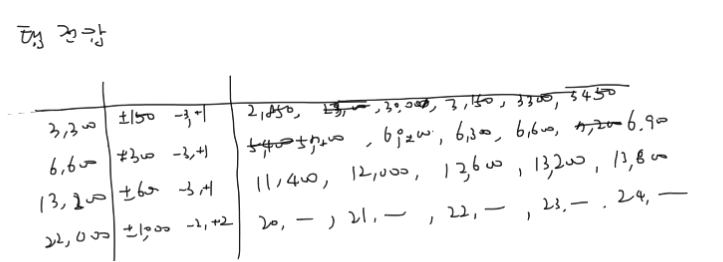 탭 전압
3,300 ±150 -3,+1 2,850, 3,000, 3,150, 3300, 3450
6,600 ±300 -3,+1 5,700, 6,000, 6,300, 6,600, 6,900
13,200 ±600 -3,+1 11,400, 12,000, 12,600, 13,200, 13,800
22,000 ±1,000 -2,+2 20,—, 21.—, 22,—, 23,—. 24,—